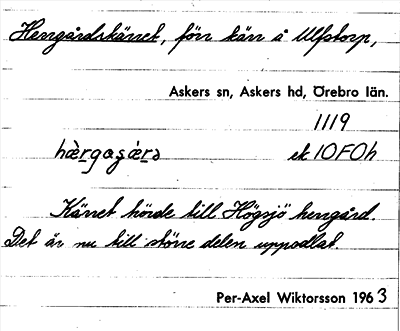 Herrgårdskärret, förr kärr å Ulfstorp,
Askers sn, Askers hd, Örebro län.
1119
hæ̀rgaşæ̀rə ek 10F0h
Kärret hörde till Högsjö herrgård.
Det är nu till större delen uppodlat.
Per-Axel Wiktorsson 1963